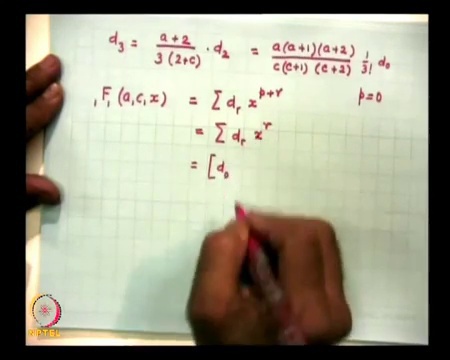 d₃ = (a+2)/(3(2+c)) · d₂ = (a(a+1)(a+2))/(c(c+1)(c+2)) 1/3! d₀
₁F₁(a,c,x) = Σ dᵣ x^(p+r) p=0
= Σ dᵣ x^r
= [d₀
NPTEL